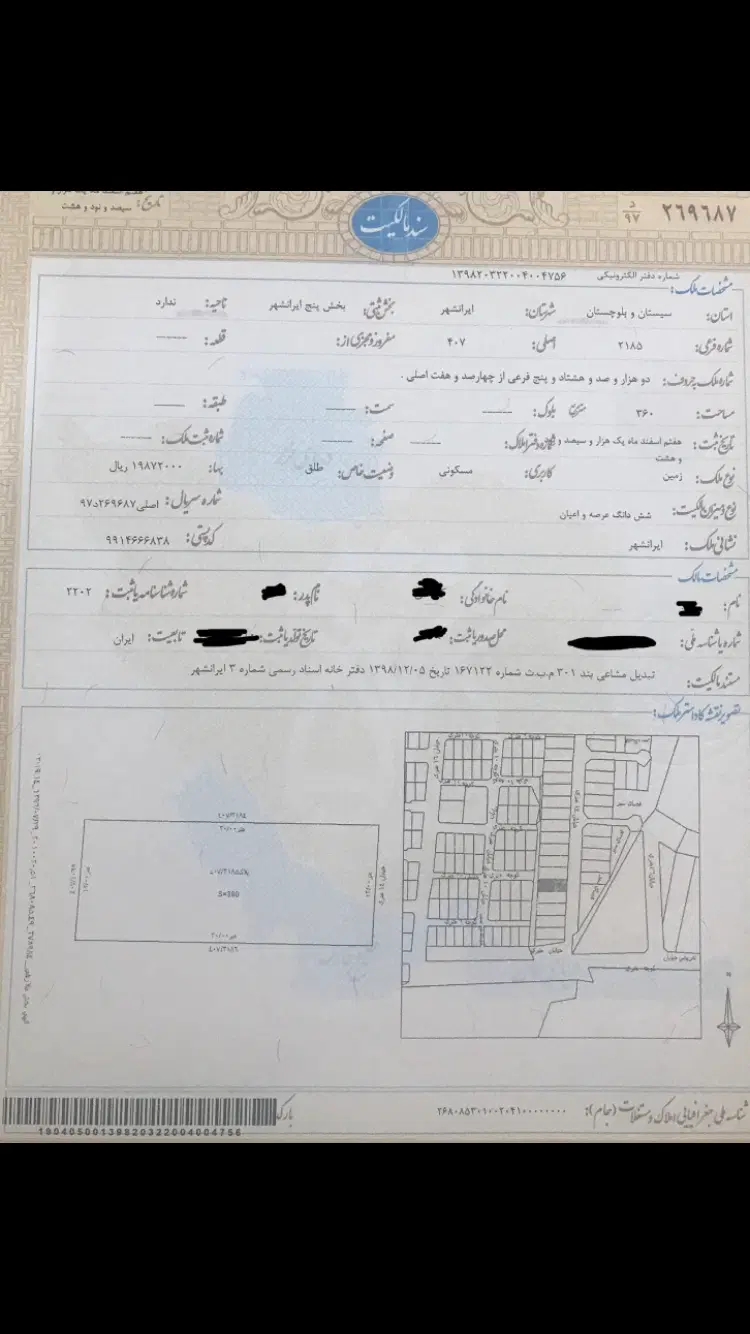 ۲۶۹۶۸۷ د ۹۷
سند مالکیت
تاریخ: سیصد و نود و هشت
شماره دفتر الکترونیکی ۱۳۹۸۲۰۳۲۲۰۰۴۰۰۴۷۵۶
مشخصات ملک:
استان: سیستان و بلوچستان شهرستان: ایرانشهر بخش ثبتی: بخش پنج ایرانشهر ناحیه: ندارد
شماره فرعی: ۲۱۸۵ اصلی: ۴۰۷ مفروز و مجزی از: قطعه: -----
شماره ملک بحروف: دو هزار و صد و هشتاد و پنج فرعی از چهارصد و هفت اصلی .
مساحت: ۳۶۰ متر مربع بلوک: ----- سمت: ----- طبقه: -----
تاریخ ثبت: هفتم اسفند ماه یک هزار و سیصد و نود و هشت شماره دفتر املاک: ----- صفحه: ----- شماره ثبت ملک: -----
نوع ملک: زمین کاربری: مسکونی وضعیت خاص: طلق بهاء: ۱۹۸۷۲۰۰۰ ریال
نوع و میزان مالکیت: شش دانگ عرصه و اعیان شماره سریال: اصلی ۲۶۹۶۸۷د۹۷
نشانی ملک: ایرانشهر کد پستی: ۹۹۱۴۶۶۶۸۳۸
مشخصات مالک
نام: نام خانوادگی: نام پدر: شماره شناسنامه یا ثبت: ۲۲۰۲
شماره یا شناسه ملی: محل صدور یا ثبت: تاریخ تولد یا ثبت: تابعیت: ایران
مستند مالکیت: تبدیل مشاعی بند ۳۰۱ م.ب.ث شماره ۱۶۷۱۲۲ تاریخ ۱۳۹۸/۱۲/۰۵ دفتر خانه اسناد رسمی شماره ۳ ایرانشهر
تصویر نقشه کاداستر ملک:
۲۰/۰۰
S=360
۲۰/۰۰
شناسه ملی جغرافیایی املاک و مستغلات (جام): ۲۶۸۰۸۵۳۰۱۰۰۲۰۴۱۰۰۰۰۰۰۰۰۰
بارکد
1904050013982032200400 4756